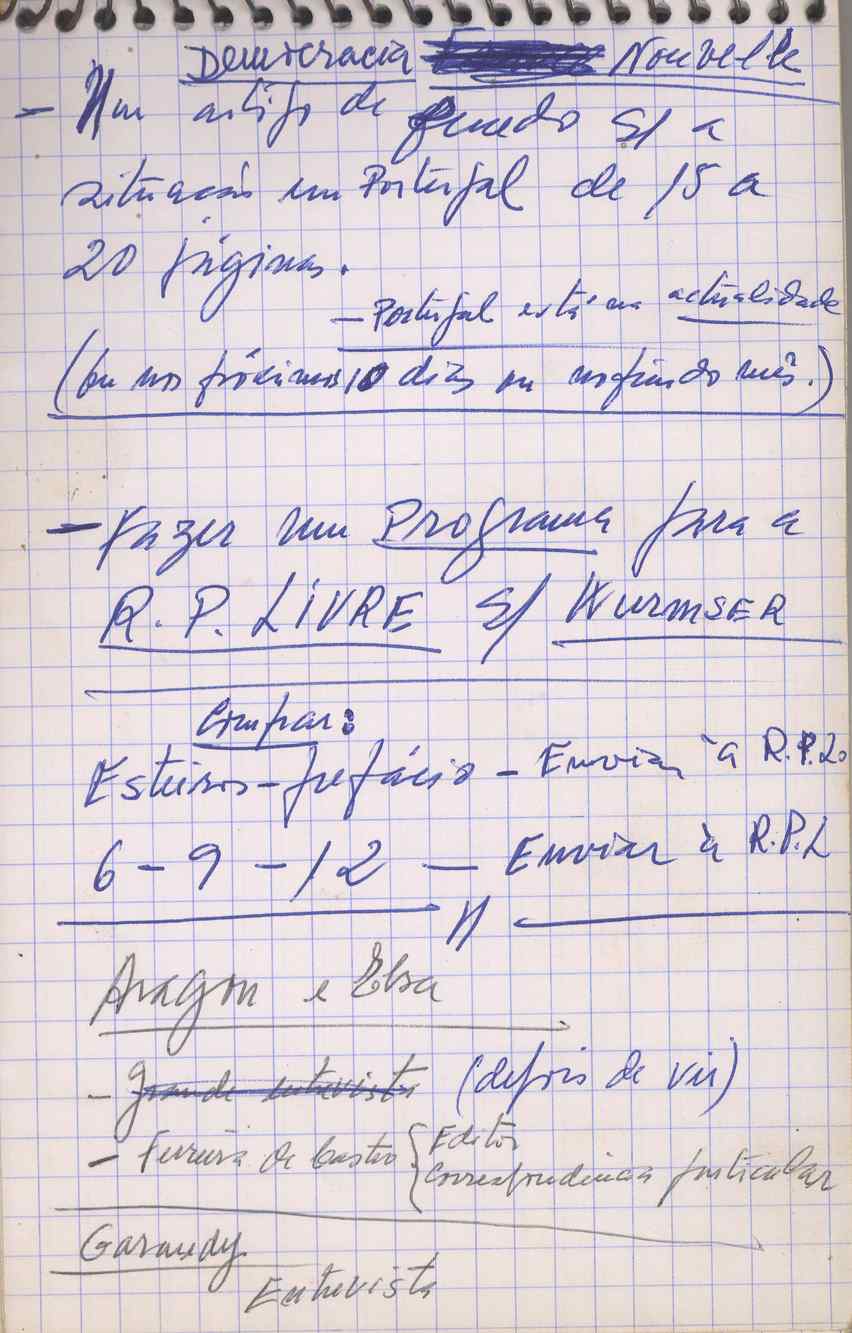 Democracia Nouvelle
- Um artigo de fundo s/ a
situação em Portugal de 15 a
20 páginas.
- Portugal está na actualidade
(ou nos próximos 10 dias ou no fim do mês.)
- Fazer um Programa para a
R. P. LIVRE s/ WURMSER
Compar:
Esteiros - prefácio - Enviar à R.P.L.
6 - 9 - 12 — Enviar à R.P.L
Aragon e Elsa
- Grande entrevista (depois de vir)
- Ferreira de Castro { Editor
Correspondência particular
Garaudy
Entrevista